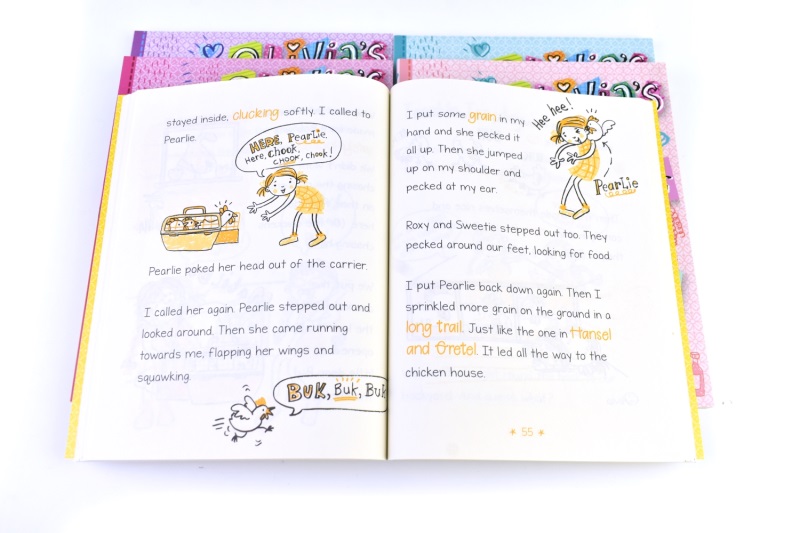 OLiViA'S
OLiViA'S
stayed inside, clucking softly. I called to
Pearlie.
HERE, PearLie.
Here, Chook,
CHOOK, Chook!
Pearlie poked her head out of the carrier.
I called her again. Pearlie stepped out and
looked around. Then she came running
towards me, flapping her wings and
squawking.
BUK, Buk, Buk
I put some grain in my
hand and she pecked it
all up. Then she jumped
up on my shoulder and
pecked at my ear.
Hee hee!
PearLie
Roxy and Sweetie stepped out too. They
pecked around our feet, looking for food.
I put Pearlie back down again. Then I
sprinkled more grain on the ground in a
long trail. Just like the one in Hansel
and Gretel. It led all the way to the
chicken house.
* 55 *